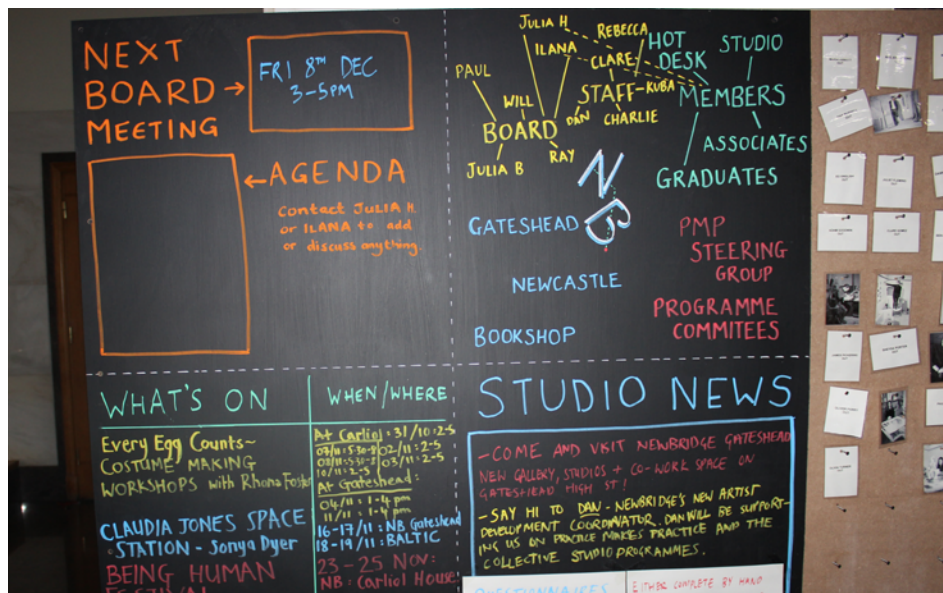 NEXT
BOARD →
MEETING
FRI 8TH DEC
3-5PM
←AGENDA
Contact JULIA H.
or ILANA to add
or discuss anything.
JULIA H
ILANA
REBECCA
CLARE
PAUL
WILL
STAFF-KUBA
DAN
CHARLIE
BOARD
JULIA B
RAY
HOT
DESK
STUDIO
MEMBERS
ASSOCIATES
GRADUATES
NB
GATESHEAD
NEWCASTLE
BOOKSHOP
PMP
STEERING
GROUP
PROGRAMME
COMMITEES
WHAT'S ON
WHEN/WHERE
Every Egg Counts~
COSTUME MAKING
WORKSHOPS with Rhona Foster
At Carliol: 31/10:2-5
07/11:5:30-8 02/11:2-5
03/11:2-5
10/11:2-5
At Gateshead:
04/11:1-4pm
11/11:1-4pm
CLAUDIA JONES SPACE
STATION - Sonya Dyer
16-17/11: NB Gateshead
18-19/11: BALTIC
BEING HUMAN
FESTIVAL
23-25 Nov:
NB: Carliol House
STUDIO NEWS
-COME AND VISIT NEWBRIDGE GATESHEAD
NEW GALLERY, STUDIOS + CO-WORK SPACE ON
GATESHEAD HIGH ST!
-SAY HI TO DAN - NEWBRIDGE'S NEW ARTIST
DEVELOPMENT COORDINATOR. DAN WILL BE SUPPORT-
ING US ON PRACTICE MAKES PRACTICE AND THE
COLLECTIVE STUDIO PROGRAMMES.
QUESTIONNAIRES
EITHER COMPLETE BY HAND